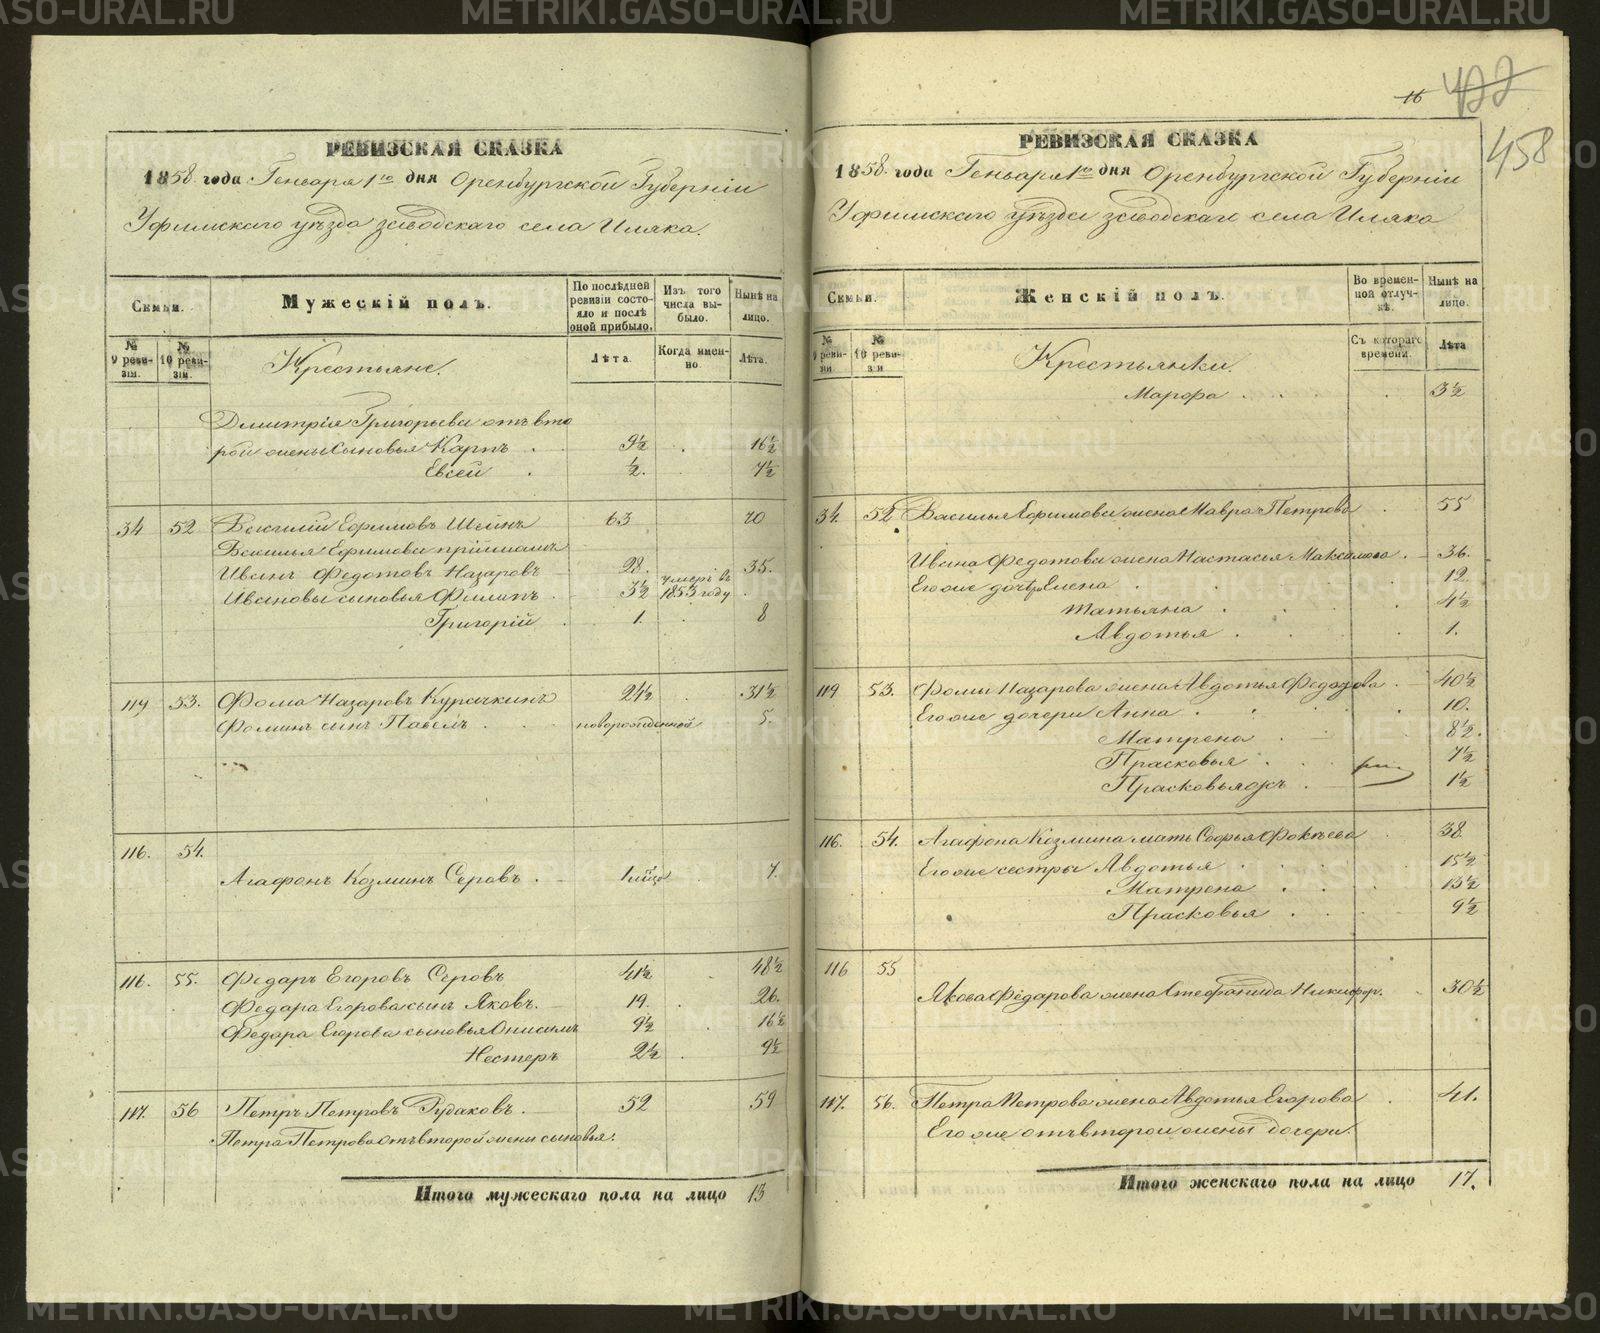 РЕВИЗСКАЯ СКАЗКА
1858. года Генваря 1го дня Оренбургской Губерніи
Уфимскаго уѣзда заводскаго села Иляка.
Семьи.
Мужескій полъ.
По послѣдней ревизіи состояло и послѣ оной прибыло.
Изъ того числа выбыло.
Нынѣ на лицо.
№ 9 ревизіи.
№ 10 ревизіи.
Крестьяне.
Лѣта.
Когда именно.
Лѣта.
Дмитрія Григорьева отъ вто
рой жены сыновья Карпъ . 9½ . 16½
Евсей . ½. 7½
34 52 Василій Ефимовъ Шеинъ 63 70
Василья Ефимова пріимышъ
Иванъ Федотовъ Назаровъ 28. 35.
Ивановы сыновья Филипъ . 3½ умеръ въ 1853 году
Григорій . 1. 8
119 53. Фома Назаровъ Курочкинъ 24½ . 31½
Фоминъ сынъ Павелъ . . новорожденной 5.
116. 54.
Агафонъ Козминъ Серовъ . 7.
116. 55. Федаръ Егоровъ Серовъ 41½ . 48½
Федара Егорова сынъ Яковъ. 19. . 26.
Федара Егорова сыновья Онисимъ 9½ 16½
Нестеръ 2½ . 9½
117. 56 Петръ Петровъ Рудаковъ. 52 59
Петра Петрова отъ второй жени сыновья.
Итого мужескаго пола на лицо 13
16 422
458
РЕВИЗСКАЯ СКАЗКА
1858. года Геньаря 1го дня Оренбургской Губерніи
Уфимскаго уѣзда заводскаго села Иляка
Семьи.
Женскій полъ.
Во временной отлучкѣ.
Нынѣ на лицо.
№ 9 ревизіи
№ 10 ревизіи
Крестьянки.
Съ котораго времени.
Лѣта
Марфа . . . . 3½
34. 52 Василья Ефимова жена Мавра Петрова . 55
Ивана Федотова жена Настасья Максимова . 36.
Егоже дочери Елена . 12
Татьяна . 4½
Авдотья . 1.
119 53. Фомы Назарова жена Авдотья Федотова . 40½
Егоже дочери Анна . 10.
Матрена . 8½.
Прасковья . 7½
Прасковья ожъ . 1½
116. 54. Агафона Козмина мать Софья Фокѣева . 38
Егоже сестры Авдотья . 15½
Матрена . 13½
Прасковья . 9½
116 55
Якова Федарова жена Стефанида Никифор. . 30½
117. 56. Петра Петрова жена Авдотья Егорова . 41.
Егоже отъ второй жены дочери.
Итого женскаго пола на лицо 17.
METRIKI.GASO-URAL.RU